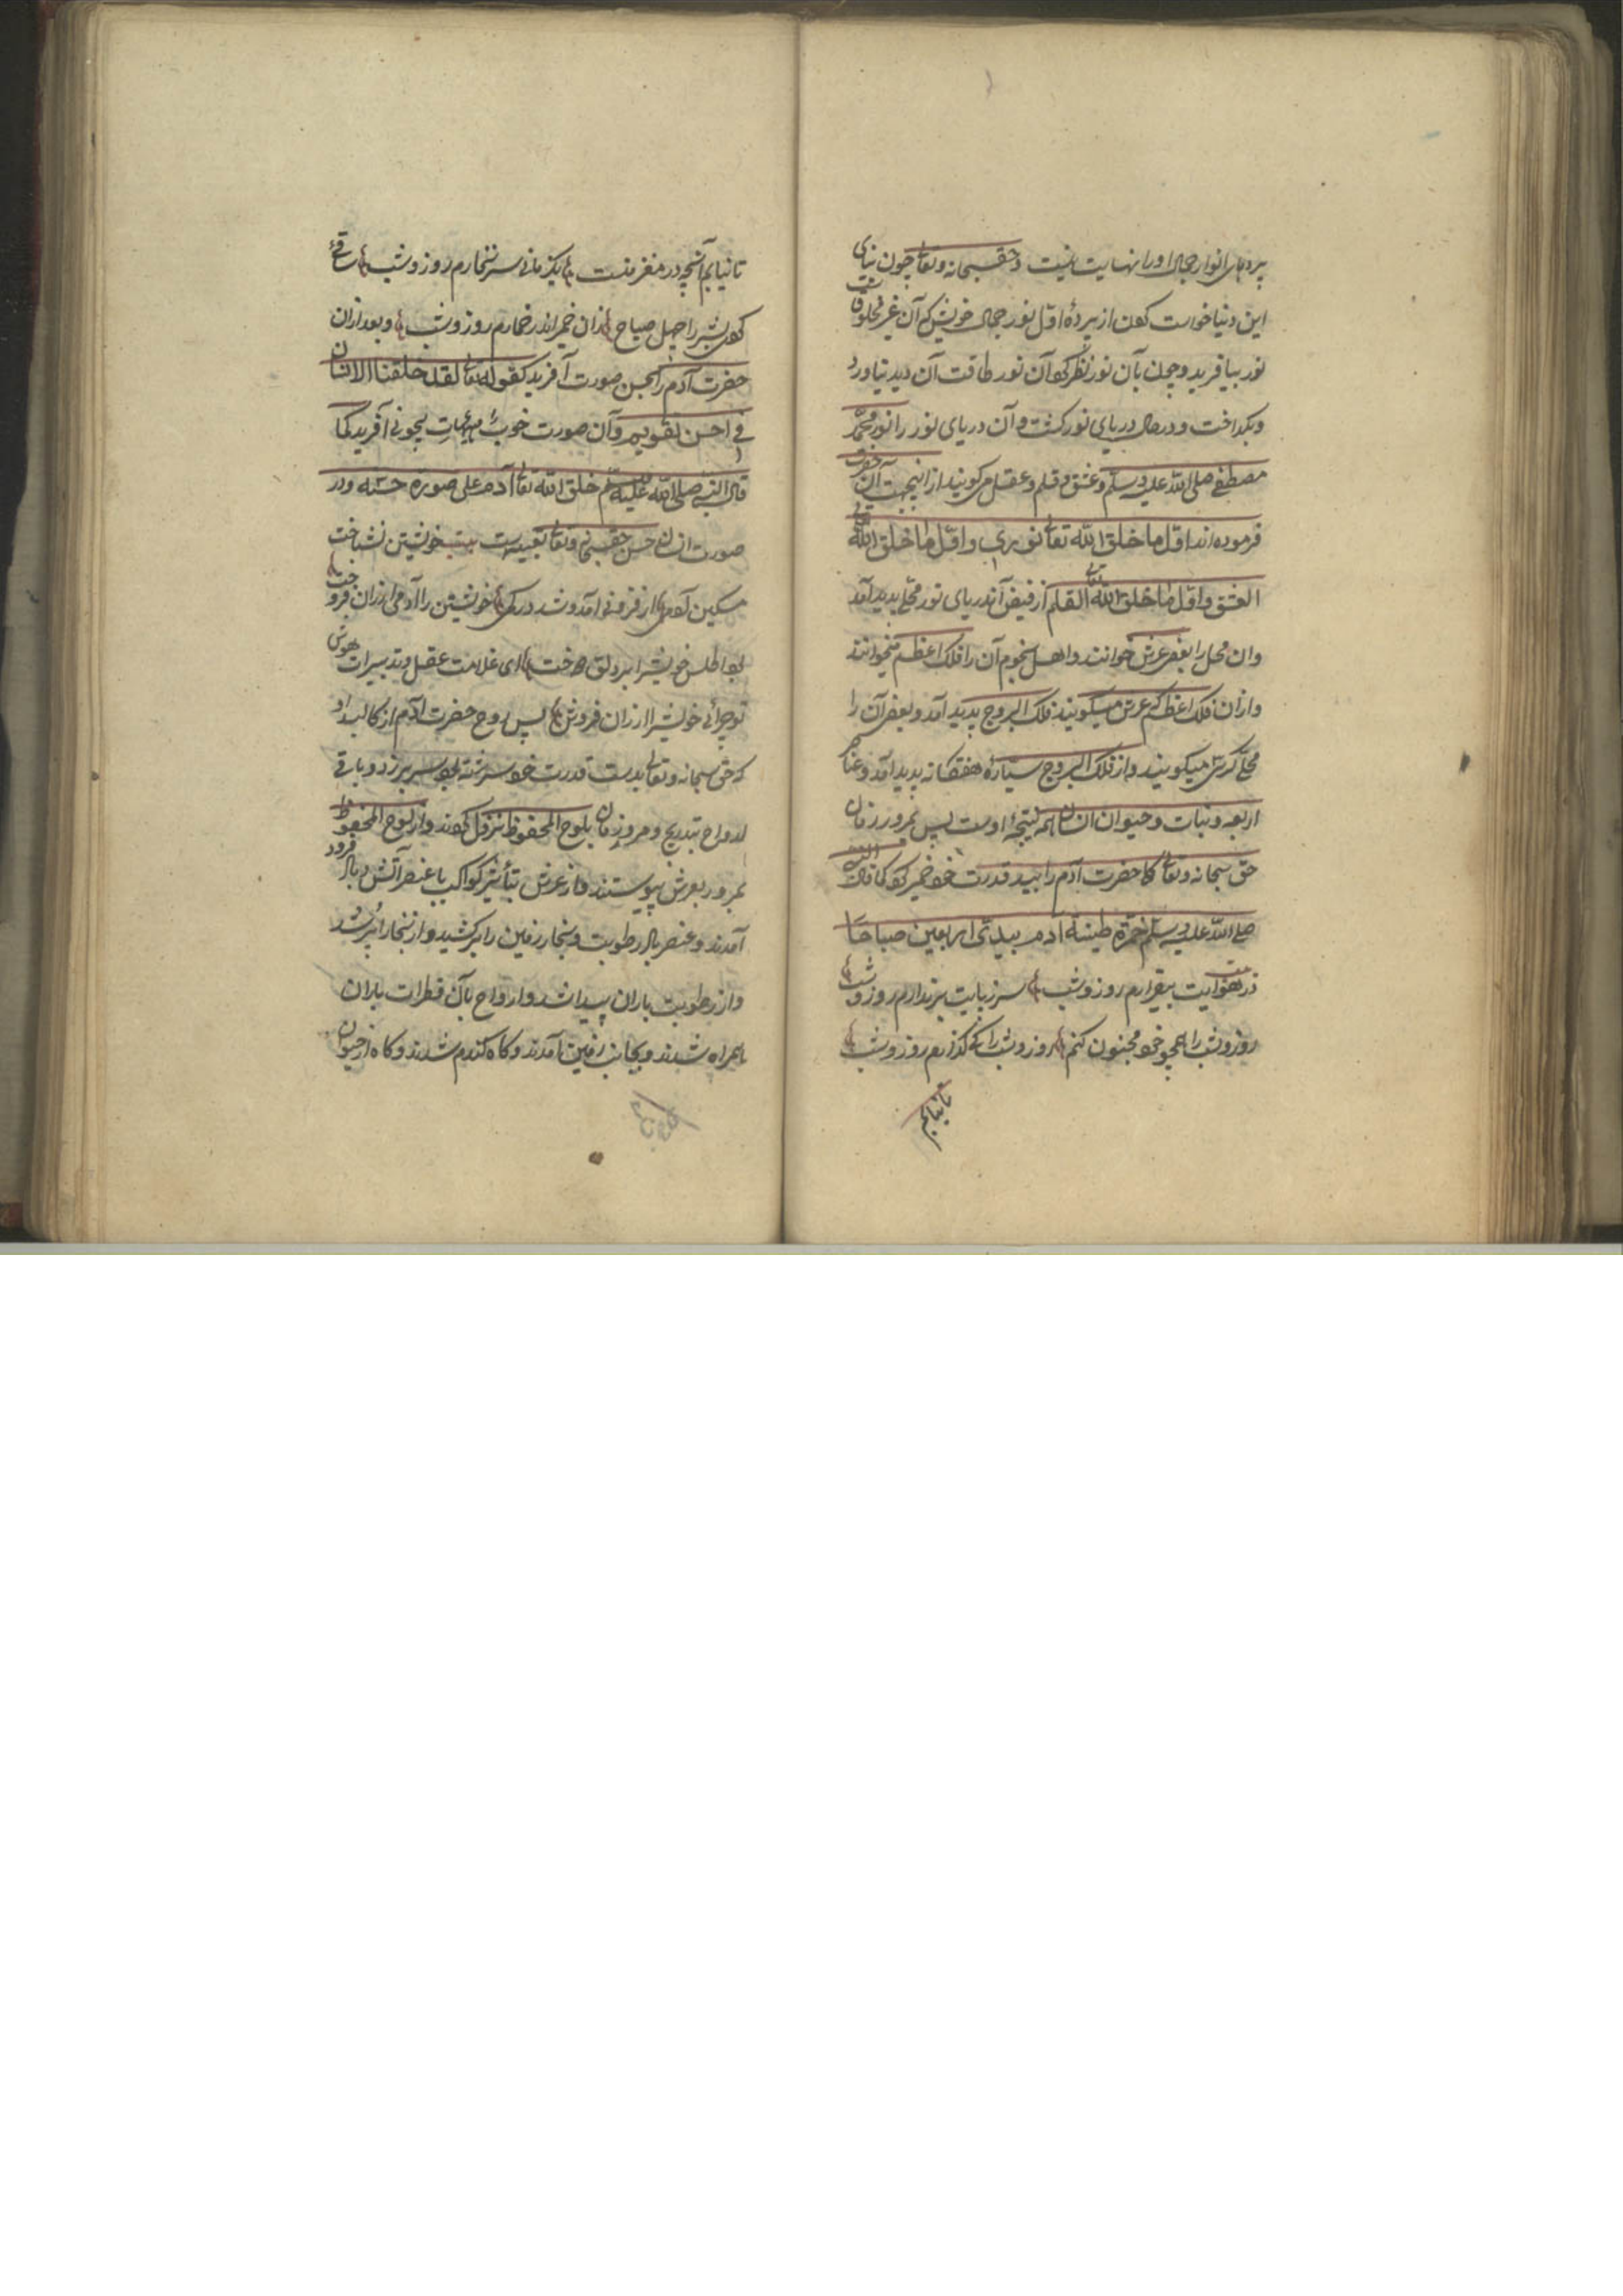 پردهای انوار جمال او را نهایت نیست و حقسبحانه وتعالی چون بنای
این دنیا خواست کردن از پردهٔ اول نور جمال خویش که آن غیر مخلوقست
نور بیافرید و چون بآن نور نظر کرد آن نور طاقت آن دید نیاورد
وبکداخت و در حال دریای نور کشت و آن دریای نور را نور محمد
مصطفی صلی الله علیه وسلم و عشق و قلم و عقل میکویند از اینجهت آن حضرت
فرموده اند اول ما خلق الله تعالی نوری واول ما خلق الله تعالی
العشق واول ما خلق الله تعالی القلم از فیض آندریای نور محلی بدید آمد
وان محل را بعضی عرش خوانند واهل نجوم آن را فلک اعظم میخوانند
وازان فلک اعظم که عرش میکویند فلک البروج بدید آمد وبعضی آن را
محل کرسی میکویند واز فلک البروج سیاره هفتکانه بدید آمد وعناصر
اربعه ونبات وحیوان انسان همه نتیجهٔ اوست پس بمرور زمان
حق سبحانه وتعالی کل حضرت آدم را بید قدرت خود خمیر کرد کما قال النبی
صلی الله علیه وسلم خمرة طینة آدم بیدی اربعین صباحا
در هوایت بیقرارم روز وشب سر ز پایت برندارم روز وشب
روز وشب را همچو خود مجنون کنم روز وشب را کی کذارم روز وشب
تا نیابم
تا نیابم آنچه در مغز منست یکزمانی سر نخارم روز وشب ساقئ
کردی بشر را چهل صباح زان خمر اندر خمارم روز وشب وبعد ازان
حضرت آدم را بحسن صورت آفرید کقوله تعالی لقد خلقنا الانسان
فی احسن تقویم وآن صورت خوب بیچونی آفرید کما
قال النبی صلی الله علیه وسلم خلق الله تعالی آدم علی صورة حسنه ودر
صورت انسان حسن حقسبحانه وتعالی تعبیه است بیت خویشتن نشناخت
مسکین آدمی از فزونی آمد وشد در کمی خویشتن را آدمی ارزان فروخت
بود اطلس خویش را بر دلق دوخت ای غلامت عقل وتدبیرات هوش
تو چرائی خویش را ارزان فروش پس روح حضرت آدم از کالبد او
که حق سبحانه وتعالی بدست قدرت خود سرشته بود سر برزد وباقی
ارواح بتدریج ومرور زمان بلوح المحفوظ نزول کردند واز لوح المحفوظ
بمرور بعرش پیوستند واز عرش بتأثیر کواکب با عنصر آتش وباد فرود
آمدند وعنصر باد رطوبت وبخار زمین را برکشید واز بخار ابر شد
واز رطوبت باران پیدا شد وارواح بآن قطرات باران
همراه شدند وبجانب زمین آمدند وکاه کندم شدند وکاه از حیوان